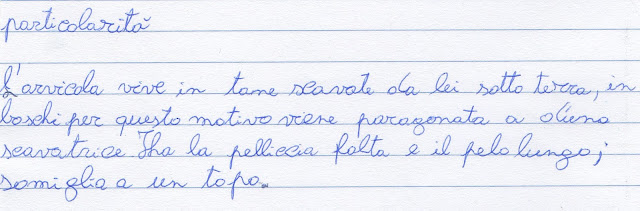 particolarità
L'arvicola vive in tane scavate da lei sotto terra, in
boschi per questo motivo viene paragonata a
scavatrice la pelliccia folta e il pelo lungo;
somiglia a un topo.